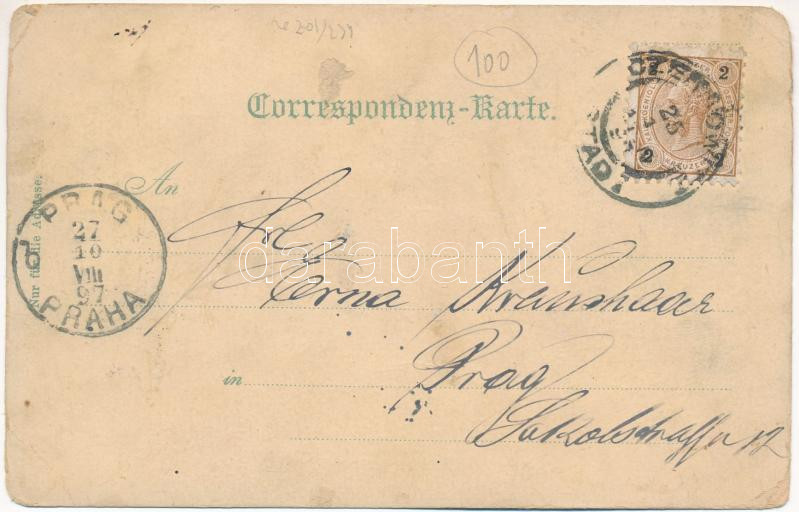 100
Correspondenz-Karte.
2
CZERNOWITZ
25
STADT
2
KREUZER
An
Nur für die Adresse.
PRAG
27
10
VIII
97
PRAHA
Erna Kraushaar
in
Prag
Sokolstrasse 12
darabanth